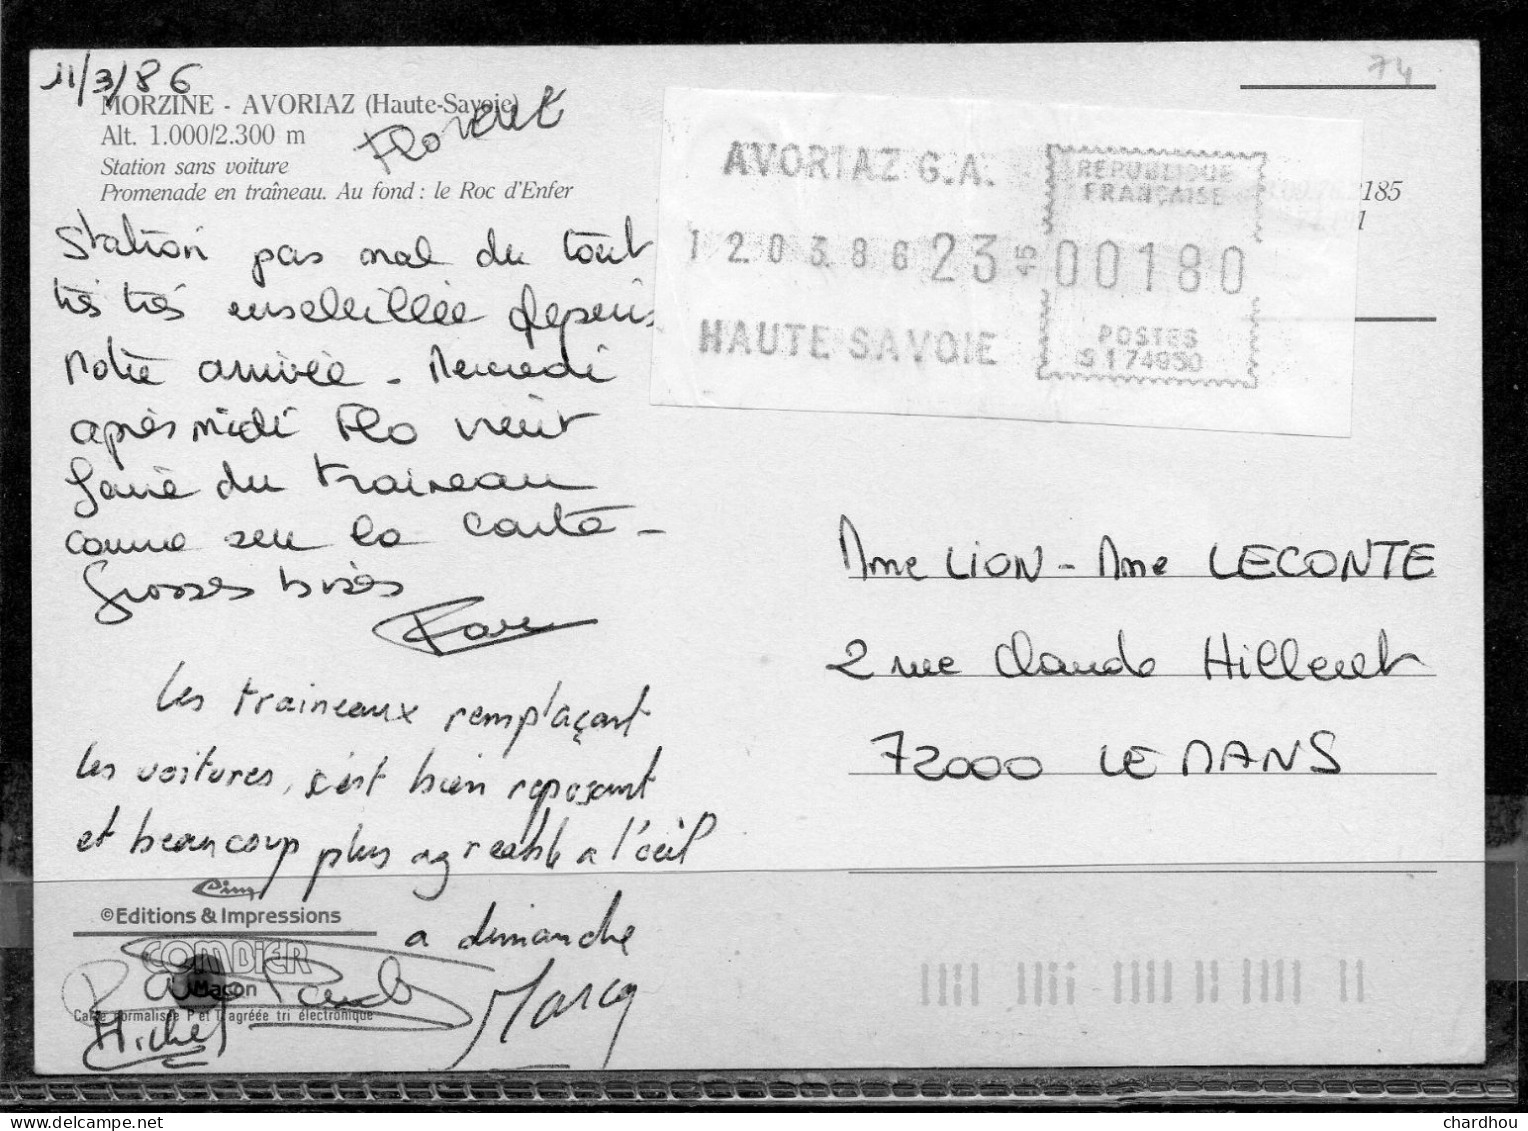 11/3/86
MORZINE - AVORIAZ (Haute-Savoie)
Alt. 1.000/2.300 m
Florent
Station sans voiture
Promenade en traîneau. Au fond : le Roc d'Enfer
Station pas mal du tout
très très ensoleillée depuis
notre arrivée - Mercredi
après midi Flo vient
faire du traineau
comme sur la carte -
Grosses bises
Les traineaux remplaçant
les voitures, c'est bien reposant
et beaucoup plus agréable a l'œil
a dimanche
Marcq
Michel
Cim
©Editions & Impressions
COMBIER
Macon
Carte normalisée P et T agréée tri électronique
74
AVORIAZ G.A.
12.03.86 23 45
HAUTE SAVOIE
REPUBLIQUE
FRANÇAISE
00180
POSTES
S174950
185
1
Mme LION - Mme LECONTE
2 rue Claude Hilleret
72000 LE MANS
chardhou